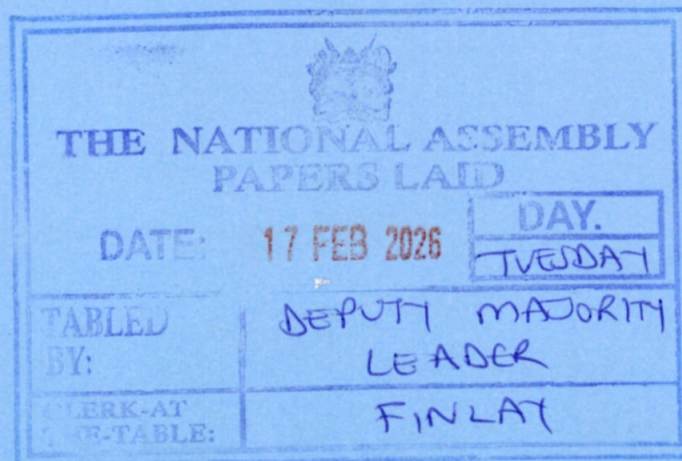 THE NATIONAL ASSEMBLY
PAPERS LAID
DATE: 17 FEB 2026
DAY.
TUESDAY
TABLED BY:
DEPUTY MAJORITY
LEADER
CLERK-AT
THE-TABLE:
FINLAY